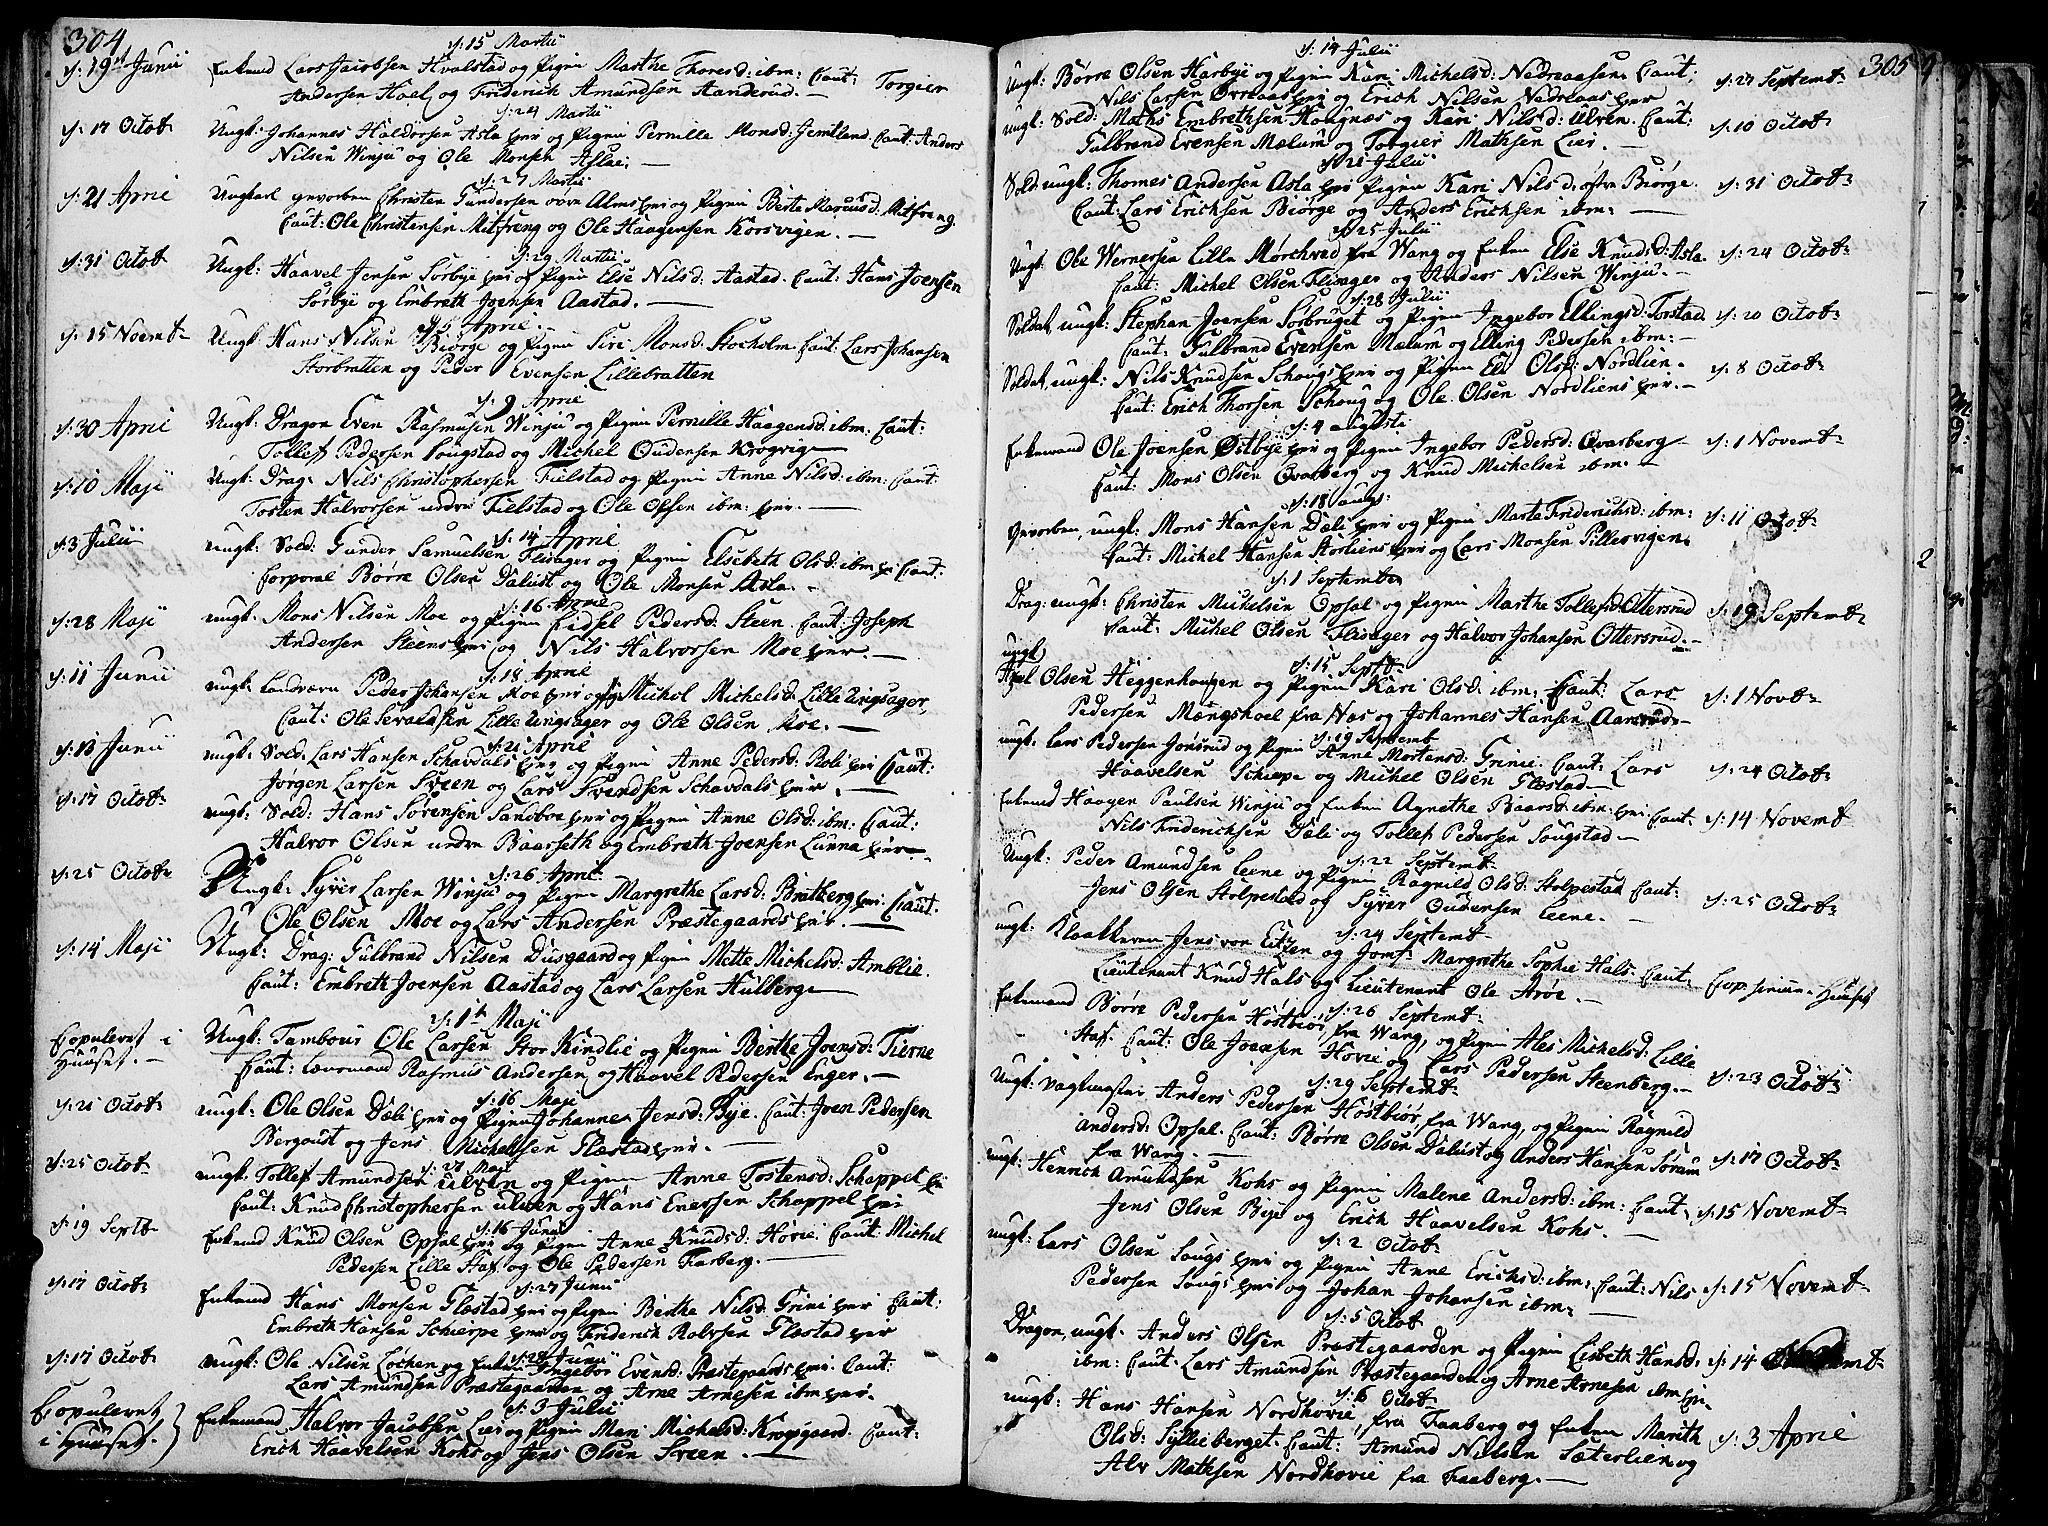 304
d: 15 Martii
d: 19 Junii Enkemd Lars Jacobsen Hvalstad og Pigen Marthe Thoresd: ibm: Caut: Torgier
Andersen Hoel og Friderich Amundsen Aanderud. —
d: 24 Martii
d: 17 Octob Ungk: Johannes Haldorsen Asla og Pigen Pernille Monsd: Jemtland. Caut: Anders
Nilsen Winju og Ole Monsen Aslae. —
d: 27 Martii
d: 21 April Ungkarl Christen Gundersen øvre Alms og Pigen Berte Marcusd: Mitfreng.
Caut: Ole Christensen Mitfreng og Ole Haagensen Korsvigen. —
d: 29 Martii
d: 31 Octob Ungk: Haavel Jensen Sorbye og Pigen Else Nilsd: Aastad. Caut: Hans Joensen
Sørbye og Embreth Joensen Aastad. —
d: 5 April. —
d: 15 Novemb Ungk: Hans Nilsen Biørge og Pigen Siri Monsd: Stocholm. Caut: Lars Johansen
Storbratten og Peder Evensen Lillebratten
d: 9 April
d: 30 April Ungk: Dragon Even Rasmusen Winju og Pigen Pernille Haagensd: ibm: Caut:
Tollef Pedersen Sougstad og Michel Oudensen Krogvig
d: 10 Maji Ungk: Drag: Nils Christophersen Fielstad og Pigen Anne Nilsd: ibm: Caut:
Tosten Halvorsen nedre Fielstad og Ole Olsen ibm: —
d: 14 April
d: 3 Julii ungk: Sold: Gunder Samuelsen Flisager og Pigen Elsebeth Olsd: ibm Caut:
Corporal Børre Olsen Dalust og Ole Monsen Asla. —
d: 16 April
d: 28 Maji ungk: Mons Nilsen Moe og Pigen Eidsel Pedersd: Steen. Caut: Joseph
Andersen Steens og Nils Halvorsen Moe —
d: 18 April
d: 11 Junii ungk: Landværn Peder Johansen Moe og Michol Michelsd: Lille Ungsager,
Caut: Ole Sevaldsen Lille Ungsager og Ole Olsen Moe. —
d: 21 April
d: 13 Junii ungk: Sold: Lars Hansen Schavdals og Pigen Anne Pedersd: Roli Caut:
Jørgen Larsen Sveen og Lars Svendsen Schavdals —
d: 17 Octob ungk: Sold: Hans Sørensen Sandboe og Pigen Anne Olsd: ibm: Caut:
Halvor Olsen nedre Baarseth og Embreth Joensen Lunna
d: 26 April
d: 25 Octob Ungk: Syver Larsen Winju og Pigen Margrethe Larsd: Bratberg Caut:
Ole Olsen Moe og Lars Andersen Præstegaards —
d: 14 Maji Ungk: Drag: Gulbrand Nilsen Dusgaard og Pigen Mette Michelsd: Amblie.
Caut: Embreth Joensen Aastad og Lars Larsen Hulberg
d: 1 Maji
Copuleret i Ungk: Tambour Ole Larsen Stor Kindlie og Pigen Berthe Joensd: Tierne
Huuset. — Caut: Rasmus Andersen og Haavel Pedersen Enger. —
d: 16 Maji
d: 21 Octob ungk: Ole Olsen Dæli og Pigen Johanne Jensd: Bye. Caut: Joen Pedersen
Bergoust og Jens Michelsen Flæstad —
d: 27 Maji
d: 25 Octob ungk: Tollef Amundsen Ulven og Pigen Anne Tostensd: Schappel
Caut: Knud Christophersen Ulven og Hans Enersen Schappel
d: 16 Junii
d: 19 Septb Enkemd Knud Olsen Opsal og Pigen Anne Knudsd: Hovie. Caut: Michel
Pedersen Lille Staf og Ole Pedersen Faaberg. —
d: 27 Junii
d: 17 Octob Enkemd Hans Monsen Flæstad og Pigen Berthe Nilsd: Grini Caut:
Embreth Hansen Schierpe og Friderich Rolvsen Flæstad
d: 28 Junii
d: 17 Octob ungk: Ole Nilsen Løchen og Enken Ingebor Evensd: Præstegaards Caut:
Lars Amundsen Præstegaarden og Arne Arnesen ibm
d: 3 Julii
Copuleret Enkemand Halvor Jacobsen Lier og Pigen Mari Michelsd: Kropsgaard. Caut:
i Huuset. Erich Haavelsen Kohs og Jens Olsen Sveen. —
305
d: 14 Julii
Ungk: Børre Olsen Harbye og Pigen Kari Michelsd: Nedreaasen. Caut; d: 27 Septemb
Nils Larsen Ørenaas og Erich Nilsen Nedreaas
ungk: Sold: Maths Embrethsen Haugnæs og Kari Nilsd: Ulven. Caut: d: 10 Octob
Gulbrand Evensen Mælum og Torgier Mathsen Lier. —
d: 21 Julii
Sold: ungk: Thomes Andersen Asla og Pigen Kari Nilsd: østre Biørge. d: 31 Octob
Caut: Lars Erichsen Biørge og Anders Erichsen ibm: —
d: 25 Julii
Ungk: Ole Wernersen Lille Mørchved fra Wang og Enken Else Knudsd: Asla. d: 24 Octob
Caut: Michel Olsen Flisager og Anders Nilsen Winju. —
d: 28 Julii
Soldat, ungk: Stephan Joensen Sorbruget og Pigen Ingebor Ellingsd: Torstad d: 20 Octob
Caut: Gulbrand Evensen Mælum og Elling Pedersen ibm: —
Soldat, ungk: Nils Knudsen Schougs og Pigen Eli Olsd: Nordlien. d: 8 Octob
Caut: Erich Thorsen Schoug og Ole Olsen Nordliens —
d: 4 augusti
Enkemand Ole Joensen Østbye og Pigen Ingebor Pedersd: Qvarberg d: 1 Novemb
Caut: Mons Olsen Qvarberg og Knud Michelsen ibm: —
d: 18 augs:
ungk: Mons Hansen Dæli og Pigen Marte Friderichsd: ibm: d: 11 Octob
Caut: Michel Hansen Storliens og Lars Monsen Pillervigen.
d: 1 Septembr
Drag: ungk: Christen Michelsen Opsal og Pigen Marthe Tollefsd: Ottersrud d: 19 Septemb
Caut: Michel Olsen Flisager og Halvor Johansen Ottersrud. —
d: 15 Septb
ungk
Olsen Heggenhougen og Pigen Kari Olsd: ibm: Caut: Lars d: 1 Novb
Pedersen Mængshoel fra Næs og Johannes Hansen Aarsrud
d: 19 Septemb
ungk: Lars Pedersen Jonsrud og Pigen Anne Mortensd: Grini. Caut: Lars d: 24 Octob
Haavelsen Schierpe og Michel Olsen Flæstad
Enkemd Haagen Paulsen Winju og Enken Agnethe Baarsd: ibm: Caut. d: 14 Novemb
Nils Friderichsen Dæli og Tollef Pedersen Sougstad —
d: 22 Septemb
Ungk: Peder Amundsen Leene og Pigen Ragnild Olsd: Stolpestad Caut: d: 25 Octob
Jens Olsen Stolpestad og Syver Oudensen Leene. —
d: 24 Septemb
ungk: Klokkeren Jens von Eitzen og Jomf: Margrethe Sophie Hals. Caut. Cop: i Huuset
Lieutenant Knud Hals og Lieutenant Ole Arøe. —
d: 26 Septemb
Enkemand Børre Pedersen Høstbiør, fra Wang, og Pigen Ales Michelsd: Lille
Staf. Caut: Ole Joensen Hovie og Lars Pedersen Steenberg. — d: 23 Octob
d: 29 Septemb
Ungk: Vagtmester Anders Pedersen Høstbiør, fra Wang, og Pigen Ragnild
Andersd: Opsal. Caut: Børre Olsen Dalust og Anders Hansen Sørum d: 17 Octob
fra Wang. —
ungk: Henrich Amundsen Kohs og Pigen Malene Andersd: ibm: Caut: d: 15 Novemb
Jens Olsen Bye og Erich Haavelsen Kohs. —
d: 2 Octob
ungk: Lars Olsen Sougs og Pigen Anne Erichsd: ibm: Caut: Nils d: 15 Novemb
Pedersen Sougs og Johan Johansen ibm: —
d: 5 Octob
Dragon, ungk: Anders Olsen Præstegaarden og Pigen Lisbeth Hansd: d: 14
ibm: Caut: Lars Amundsen Præstegaarden og Arne Arnesen ibm
d: 16 Octob
ungk: Hans Hansen Nordhovie, fra Faaberg og Enken Marith d: 3 April
Olsd: Syllieberget. Caut: Amund Nilsen Sæterlien og
Alv Mathsen Nordhovie fra Faaberg. —